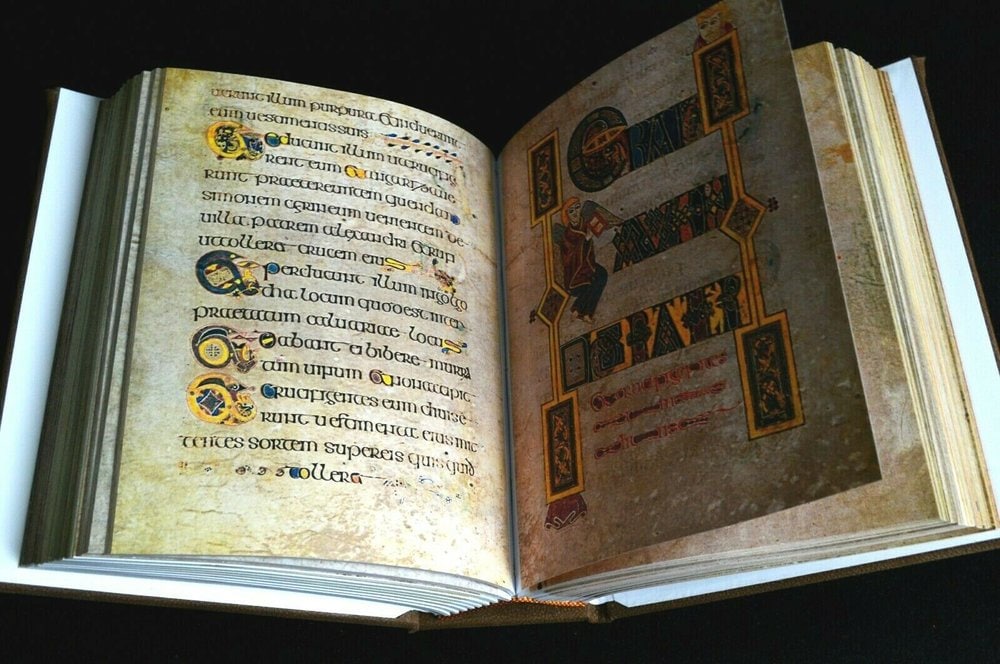 uerunt illum purpura & induerunt
eum uestimentis suis
Et ducunt illum ut crucifige
rent eum Et angarizaue
runt praetereuntem quendam
simonem cyrineum uenientem de
uilla patrem alexandri & rufi
ut tolleret crucem eius
Et perducunt illum in golgo
tha locum quod est inter
praetatum caluariae locus
Et dabant ei bibere murra
tum uinum Et non accepit
Et crucifigentes eum diuise
runt uestimenta eius mit
tentes sortem super eis quis quid
tolleret
ERAT